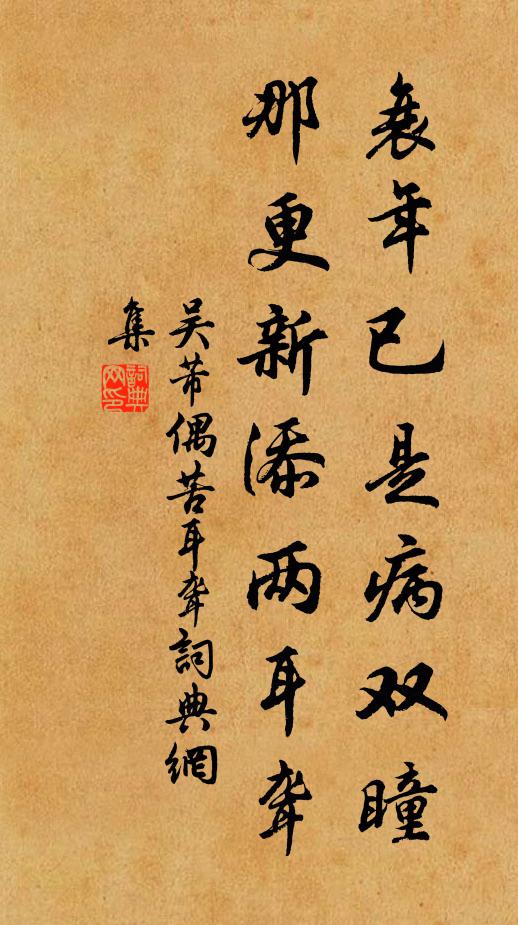 衰年已是病双瞳
那更新添两耳聋
吴芾偶苦耳聋詞典網
集
詞典網印